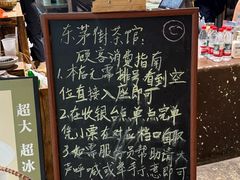 东菜街茶馆
顾客消费指南
1.本店无需排号看到空
位直接入座即可
2.在收银台点单点完单
凭小票在对应档口取
3.如需服务员帮助请大
声呼喊或举手示意即可
超大
超冰